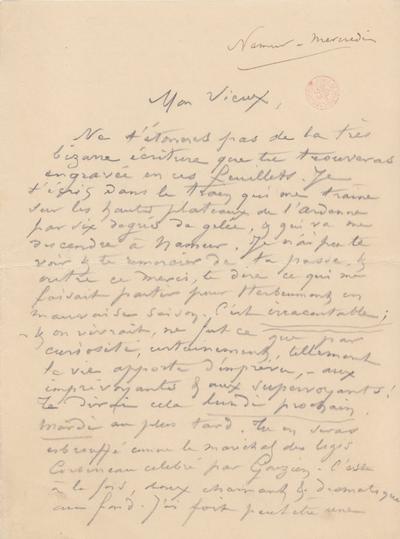 Namur - mercredi
Mon Vieux,
Ne t'étonnes pas de la très
bizarre écriture que tu trouveras
engravée en ces feuillets. Je
t'écris dans le train qui me traine
sur les hauts plateaux de l'Ardenne
par six degrés de gelée, & qui va me
descendre à Namur. Je n'ai pu te
voir & te remercier de ta passe, &
outre ce merci, te dire ce qui me
faisait partir pour Herbeumont en
mauvaise saison. C'est irracontable;
& on vivrait, ne fut ce que par
curiosité, certainement, tellement
la vie apporte d'imprévu, - aux
imprévoyants & aux supervoyants!
Te dirai cela lundi prochain.
mardi au plus tard. Tu en seras
esbrouffé comme le maréchal des logis
célébré par C'est
à la fois, doux charmant & dramatique
au fond. J'ai fait peut être une